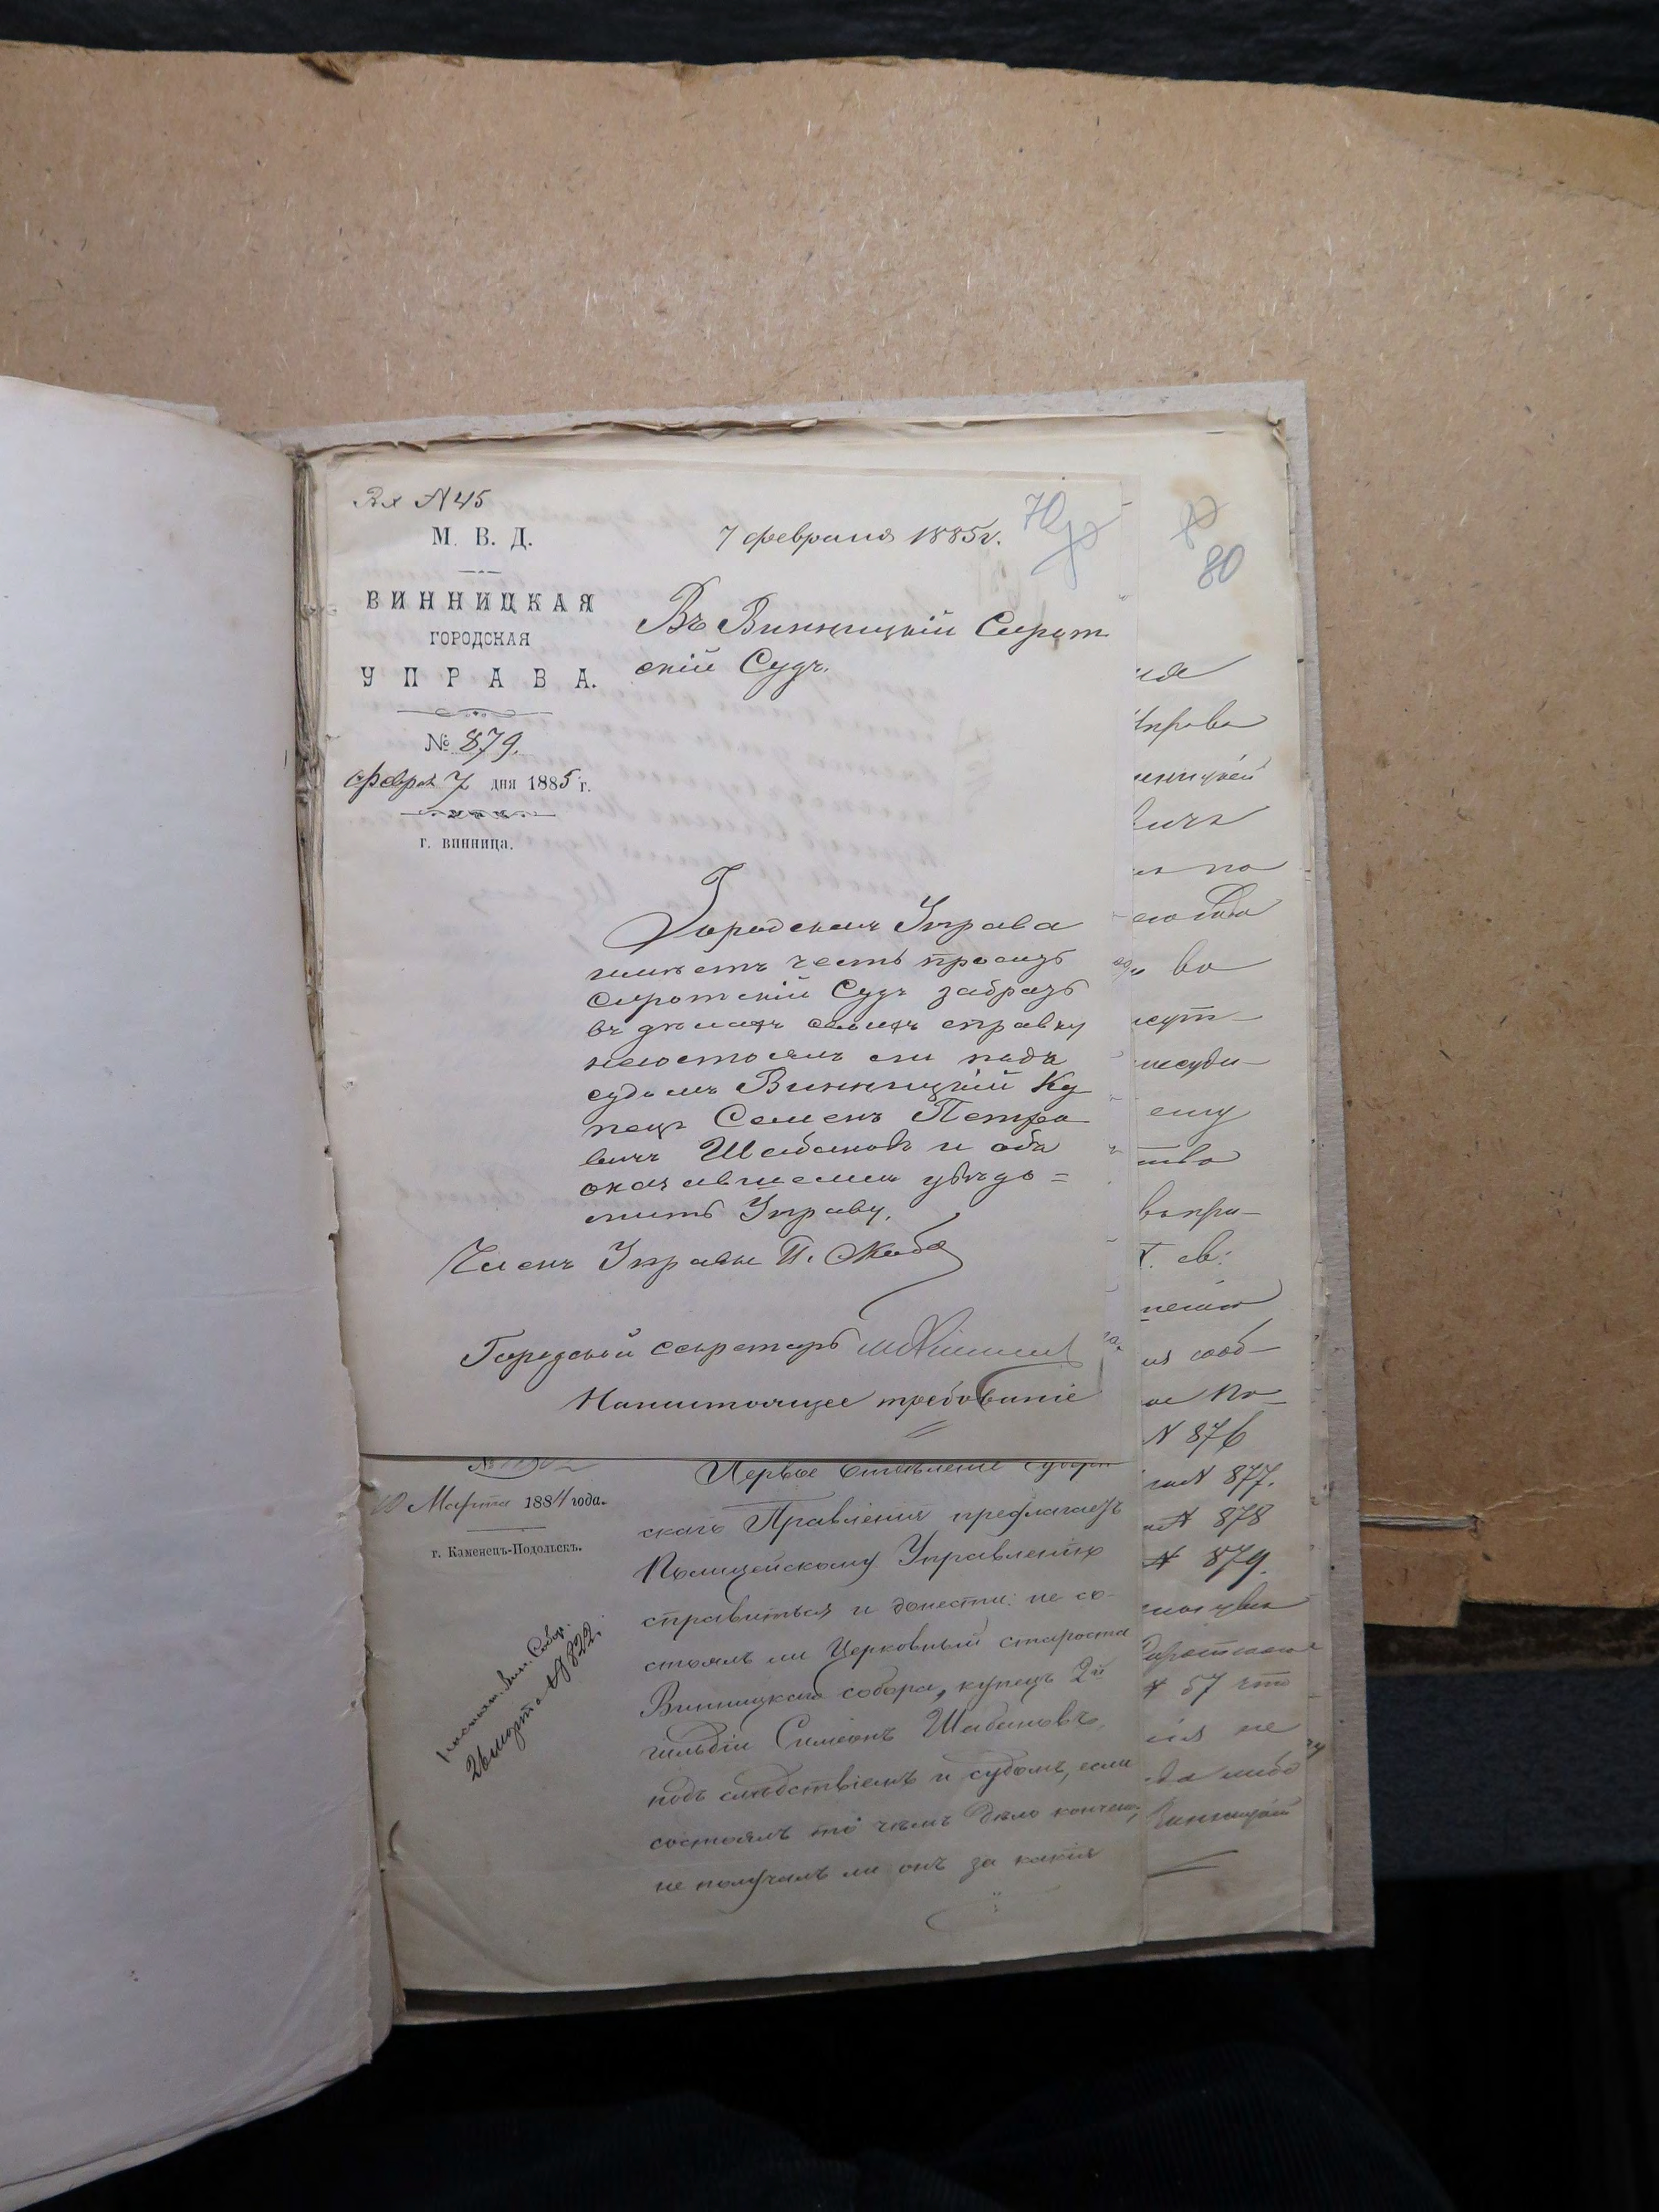 Вх №45
М. В. Д.
ВИННИЦКАЯ
ГОРОДСКАЯ
УПРАВА.
№ 879.
Февра 7 дня 1885 г.
г. винница.
7 февраля 1885 г.
70
80
Въ Винницкій Сирот
скій Судъ.
Городская Управа
имѣетъ честь просить
Сиротскій Судъ забрать
въ дѣлахъ своихъ справку
несостоялъ ли подъ
судомъ Винницкій Ку
пецъ Семенъ Петро
вичъ Шабановъ и объ
оказавшемся увѣдо=
мить Управу.
Членъ Управы П.
Городской секретарь
Настоящее требованіе
Первое Отдѣленіе Губерн
10 Марта 1884 года.
г. Каменецъ-Подольскъ.
скаго Правленія предлагаетъ
Полицейскому Управленію
справиться и донести: не со-
стоялъ ли Церковный староста
Винницкаго собора, купецъ 2й
гильдіи Симеонъ Шабановъ,
подъ слѣдствіемъ и судомъ, если
состоялъ то чѣмъ дѣло кончено,
не получалъ ли онъ за какія
26 марта №822.
ему
№ 876
№ 877.
№ 878
№ 879.
№ 57 что
не